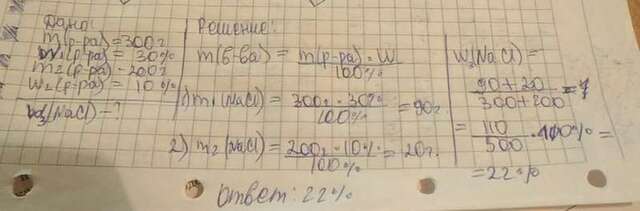 Дано:
m(р-ра)=300г
w₁(р-ра) = 30%
m₂(р-ра) - 200г
w₂(р-ра) = 10%
w₃(NaCl) - ?
Решение:
m(в-ва) = m(р-ра) · W / 100%
1) m₁(NaCl) = 300г · 30% / 100% = 90г.
2) m₂(NaCl) = 200г · 10% / 100% = 20г.
W₃(NaCl) =
90+20 / 300+200 =
= 110 / 500 · 100% =
= 22%
Ответ: 22%